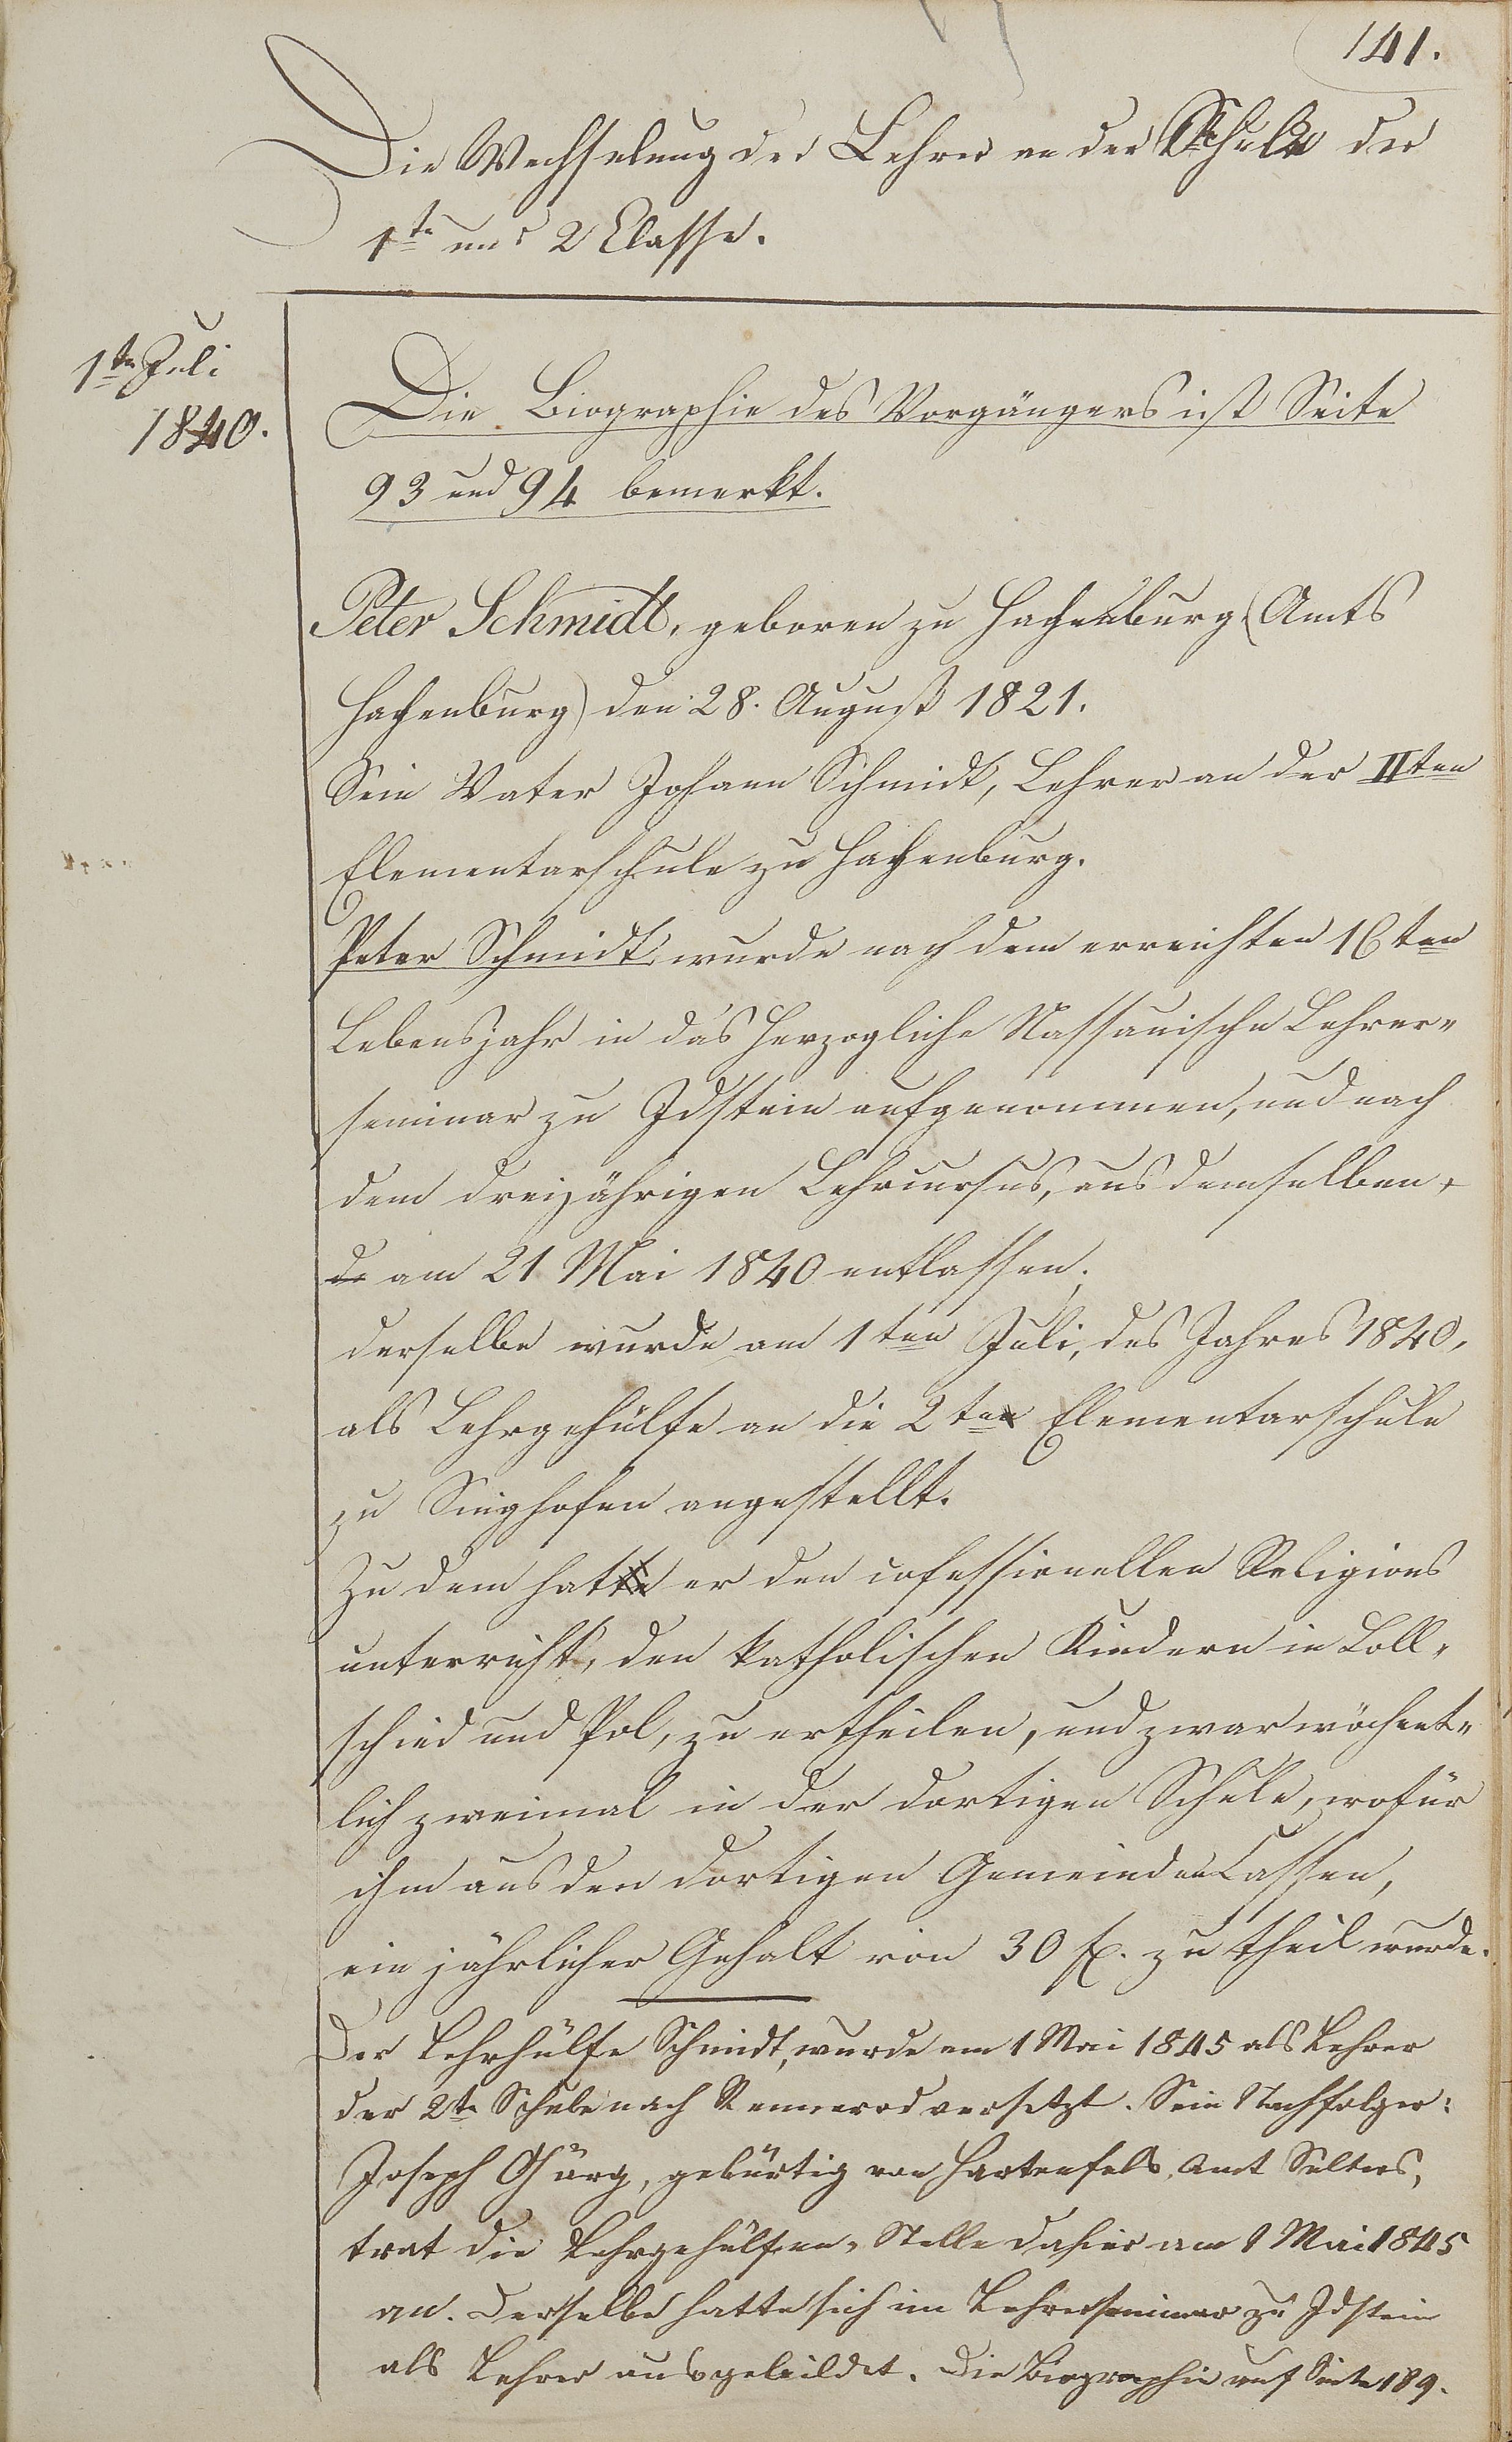 141.
Die Wechselung der Lehrer an der Schule der
1te und 2 Classe.
1ten Juli
1840.
Die Biographie des Vorgängers ist Seite
93 und 94 bemerkt.
Peter Schmidt, geboren zu Hachenburg (Amts
Hachenburg) den 28. August 1821.
Sein Vater Johann Schmidt, Lehrer an der IIten
Elementarschule zu Hachenburg.
Peter Schmidt wurde nach dem erreichten 16ten
Lebensjahr in das Herzogliche Nassauische Lehrer-
seminar zu Idstein aufgenommen, und nach
dem dreijährigen Lehrcursus, aus demselben,
de am 21 Mai 1840 entlassen.
derselbe wurde am 1ten Juli, des Jahres 1840,
als Lehrgehülfe an die 2te Elementarschule
zu Singhofen angestellt.
Zu dem hatte er den cofessionellen Religions
unterricht, den katholischen Kindern in Loll-
schied und Pol, zu ertheilen, und zwar wöchent-
lich zweimal in der dortigen Schule, wofür
ihm aus den dortigen Gemeinden Cassen,
ein jährlicher Gehalt von 30 fl. zu theil wurde.
Der Lehrhülfe Schmidt, wurde am 1 Mai 1845 als Lehrer
der 2te Schule nach Rennerod versetzt. Sein Nachfolger:
Joseph Gürg, gebürtig von Hartenfels, Amt Selters,
trat die Lehrgehülfen-Stelle dahier am 1 Mai 1845
an. Derselbe hatte sich im Lehrerseminar zu Idstein
als Lehrer ausgebildet. Die Biographie auf Seite 189.